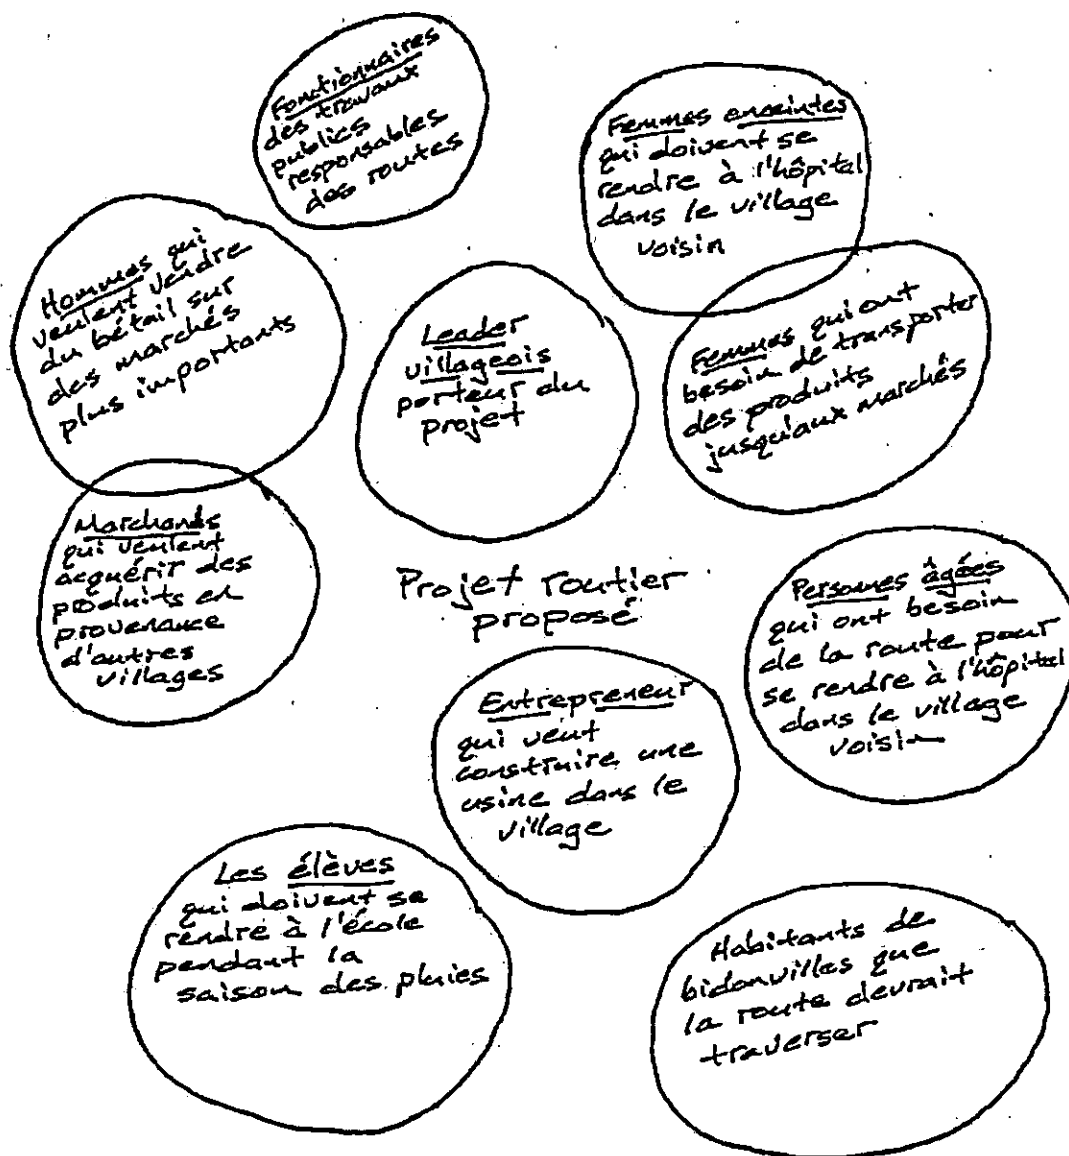 Fonctionnaires
des travaux
publics
responsables
des routes
Femmes enceintes
qui doivent se
rendre à l'hôpital
dans le village
voisin
Hommes qui
veulent vendre
du bétail sur
des marchés
plus importants
Leader
villageois
porteur du
projet
Femmes qui ont
besoin de transporter
des produits
jusqu'aux marchés
Marchands
qui veulent
acquérir des
produits en
provenance
d'autres
villages
Projet routier
proposé
Personnes âgées
qui ont besoin
de la route pour
se rendre à l'hôpital
dans le village
voisin
Entrepreneur
qui veut
construire une
usine dans le
village
Les élèves
qui doivent se
rendre à l'école
pendant la
saison des pluies
Habitants de
bidonvilles que
la route devrait
traverser